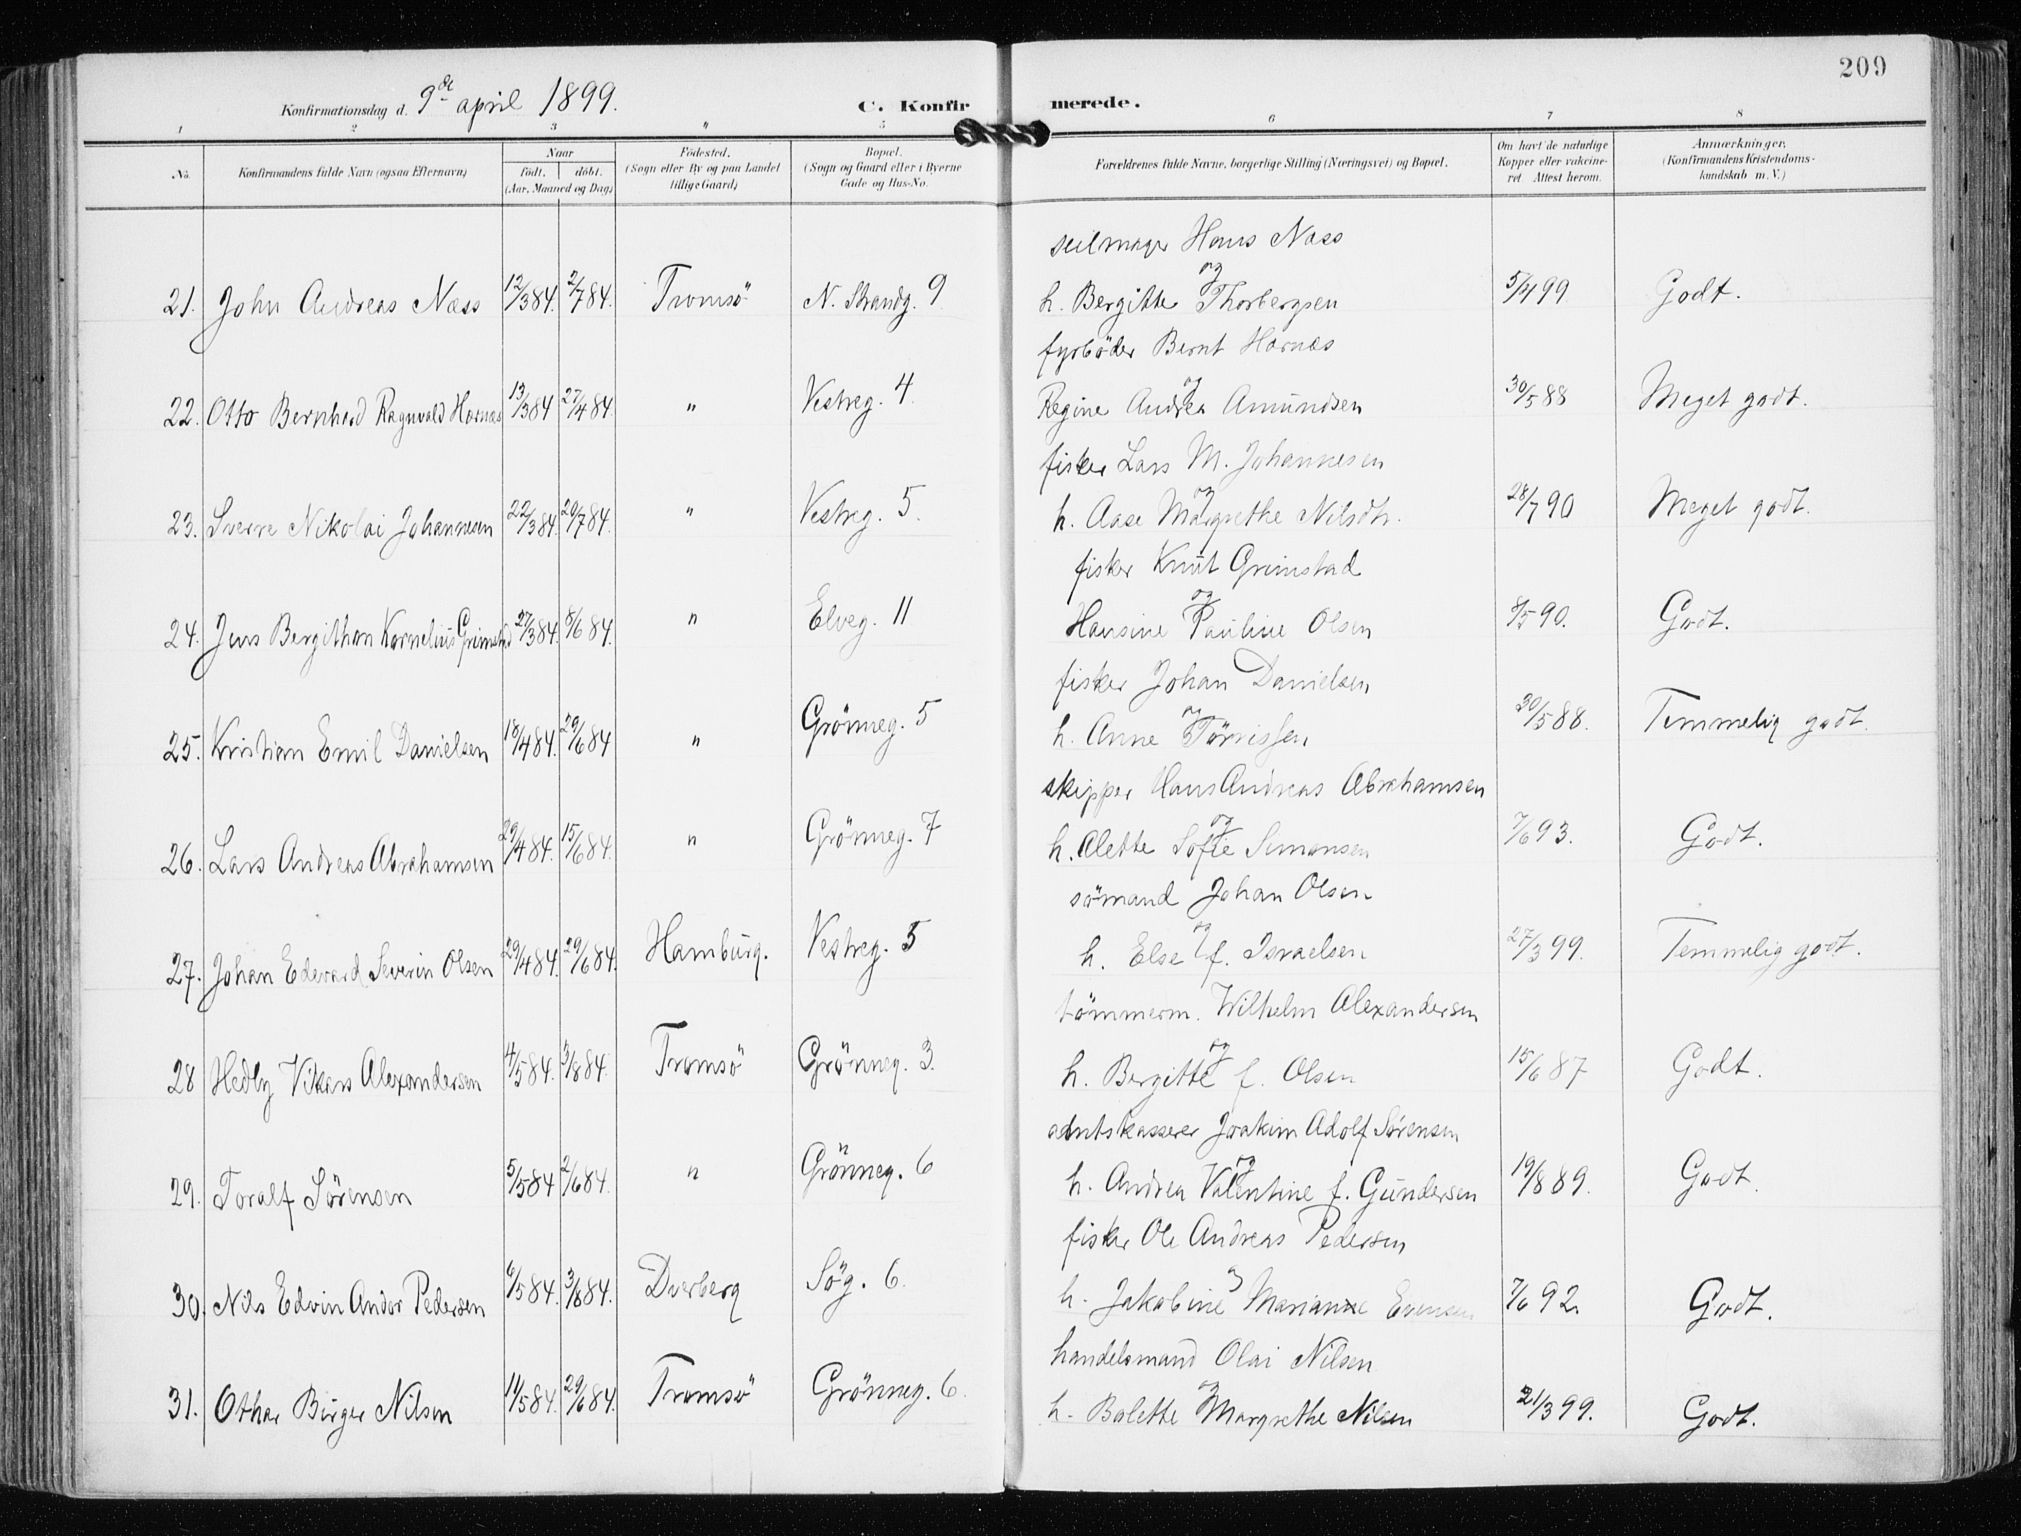 209
Konfirmationsdag d. 9de april 1899.
C. Konfirmerede.
1 2 3 " 5 6 7 8
No. Konfirmandens fulde Navn (ogsaa Efternavn) Naar født. døbt. (Aar, Maaned og Dag) Fødested. (Sogn eller By og paa Landet tillige Gaard) Bopæl. (Sogn og Gaard eller i Byerne Gade og Hus-No. Forældrenes fulde Navne, borgerlige Stilling (Næringsvei) og Bopæl. Om havt de naturlige Kopper eller vakcineret Attest herom. Anmærkninger. (Konfirmandens Kristendomskundskab m. V.)
seilmager Hans Næss
og
21. John Andreas Næss 12/3 84. 2/7 84. Tromsö N. Strandg. 9 h. Bergitte Thorbergsen 5/4 99 Godt.
fyrböder Bernt Hornæs
og
22. Otto Bernhard Ragnvald Hornæs 13/3 84 27/4 84. " Vestreg. 4. Regine Andrea Amundsen 30/5 88 Meget godt.
fisker Lars M. Johannesen
og
23. Sverre Nikolai Johannesen 22/3 84. 20/7 84. " Vestreg. 5. h. Aase Margrethe Nilsdtr. 28/7 90 Meget godt.
fisker Knut Grimstad
og
24. Jens Bergithon Kornelius Grimstad 27/3 84. 8/6 84. " Elveg. 11 Hansine Pauline Olsen 8/5 90. Godt.
fisker Johan Danielsen
og
25. Kristian Emil Danielsen 18/4 84. 29/6 84 " Grönneg. 5 h. Anne Törrissen 30/5 88. Temmelig godt.
skipper Hans Andreas Abrahamsen
og
26. Lars Andreas Abrahamsen 29/4 84. 15/6 84. " Grönneg. 7 h. Alette Sofie Simonsen 7/6 93. Godt.
sömand Johan Olsen
og
27. Johan Edevard Severin Olsen 29/4 84. 29/6 84. Hamburg. Vestreg. 5 h. Else f. Israelsen 27/3 99. Temmelig godt.
tömmerm. Wilhelm Alexandersen
og
28 Hedly Alexandersen 4/5 84. 3/8 84. Tromsö Grönneg. 3. h. Bergitte f. Olsen 15/6 87 Godt.
amtskasserer Joakim Adolf Sørensen
og
29. Toralf Sørensen 5/5 84 2/6 84. " Grönneg. 6 h. Andrea Valentine f. Gundersen 19/8 89. Godt.
fisker Ole Andreas Pedersen
og
30. Nils Edvin Andor Pedersen 6/5 84. 3/8 84. Dverberg Sög. 6. h. Jakobine Marianne Evensen 7/6 92. Godt.
handelsmand Olai Nilsen
og
31. Othar Birger Nilsen 11/5 84. 29/6 84. Tromsö Grönneg. 6. h. Bolette Margrethe Nilsen 21/3 99. Godt.